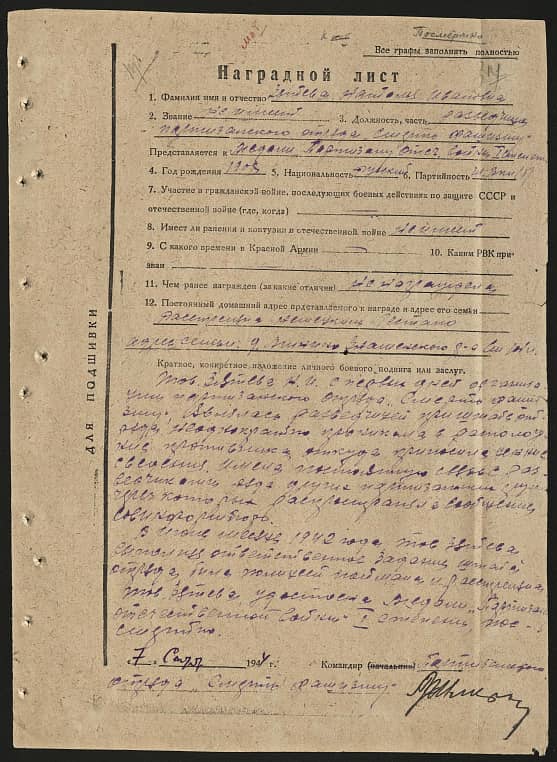 Посмертно
Все графы заполнять полностью
Наградной лист
1. Фамилия имя и отчество Зятева Наталья Ивановна
2. Звание не имеет 3. Должность, часть разведчица
партизанского отряда „Смерть фашизму"
Представляется к медали „Партизану Отеч. войны" I степени
4. Год рождения 5. Национальность русская 6. Партийность
7. Участие в гражданской войне, последующих боевых действиях по защите СССР и
отечественной войне (где, когда)
8. Имеет ли ранения и контузии в отечественной войне не имеет
9. С какого времени в Красной Армии 10. Каким РВК при-
зван
11. Чем ранее награжден (за какие отличия) не награждена
12. Постоянный домашний адрес представляемого к награде и адрес его семьи
расстреляна немецким гестапо
адрес семьи: д. Знаменского р-на
ДЛЯ ПОДШИВКИ
Краткое, конкретное изложение личного боевого подвига или заслуг.
Тов. Зятева Н.И. с первых дней организа-
ции партизанского отряда „Смерть фаши-
зму" являлась разведчицей при штабе от-
ряда неоднократно проникала в располо-
жение противника откуда приносила ценные
сведения. Имела постоянную связь с раз-
ведчиками
через которых распространяла сообщения
Совинформбюро.
В июне месяце 1942 года тов. Зятева
выполняя ответственное задание штаба
отряда, была полицией поймана и расстреляна
Тов. Зятева удостоена медали „Партизан
отечественной войны" I степени пос-
смертно.
7 1944 Командир (начальник) Партизанского
отряда „Смерть фашизму"